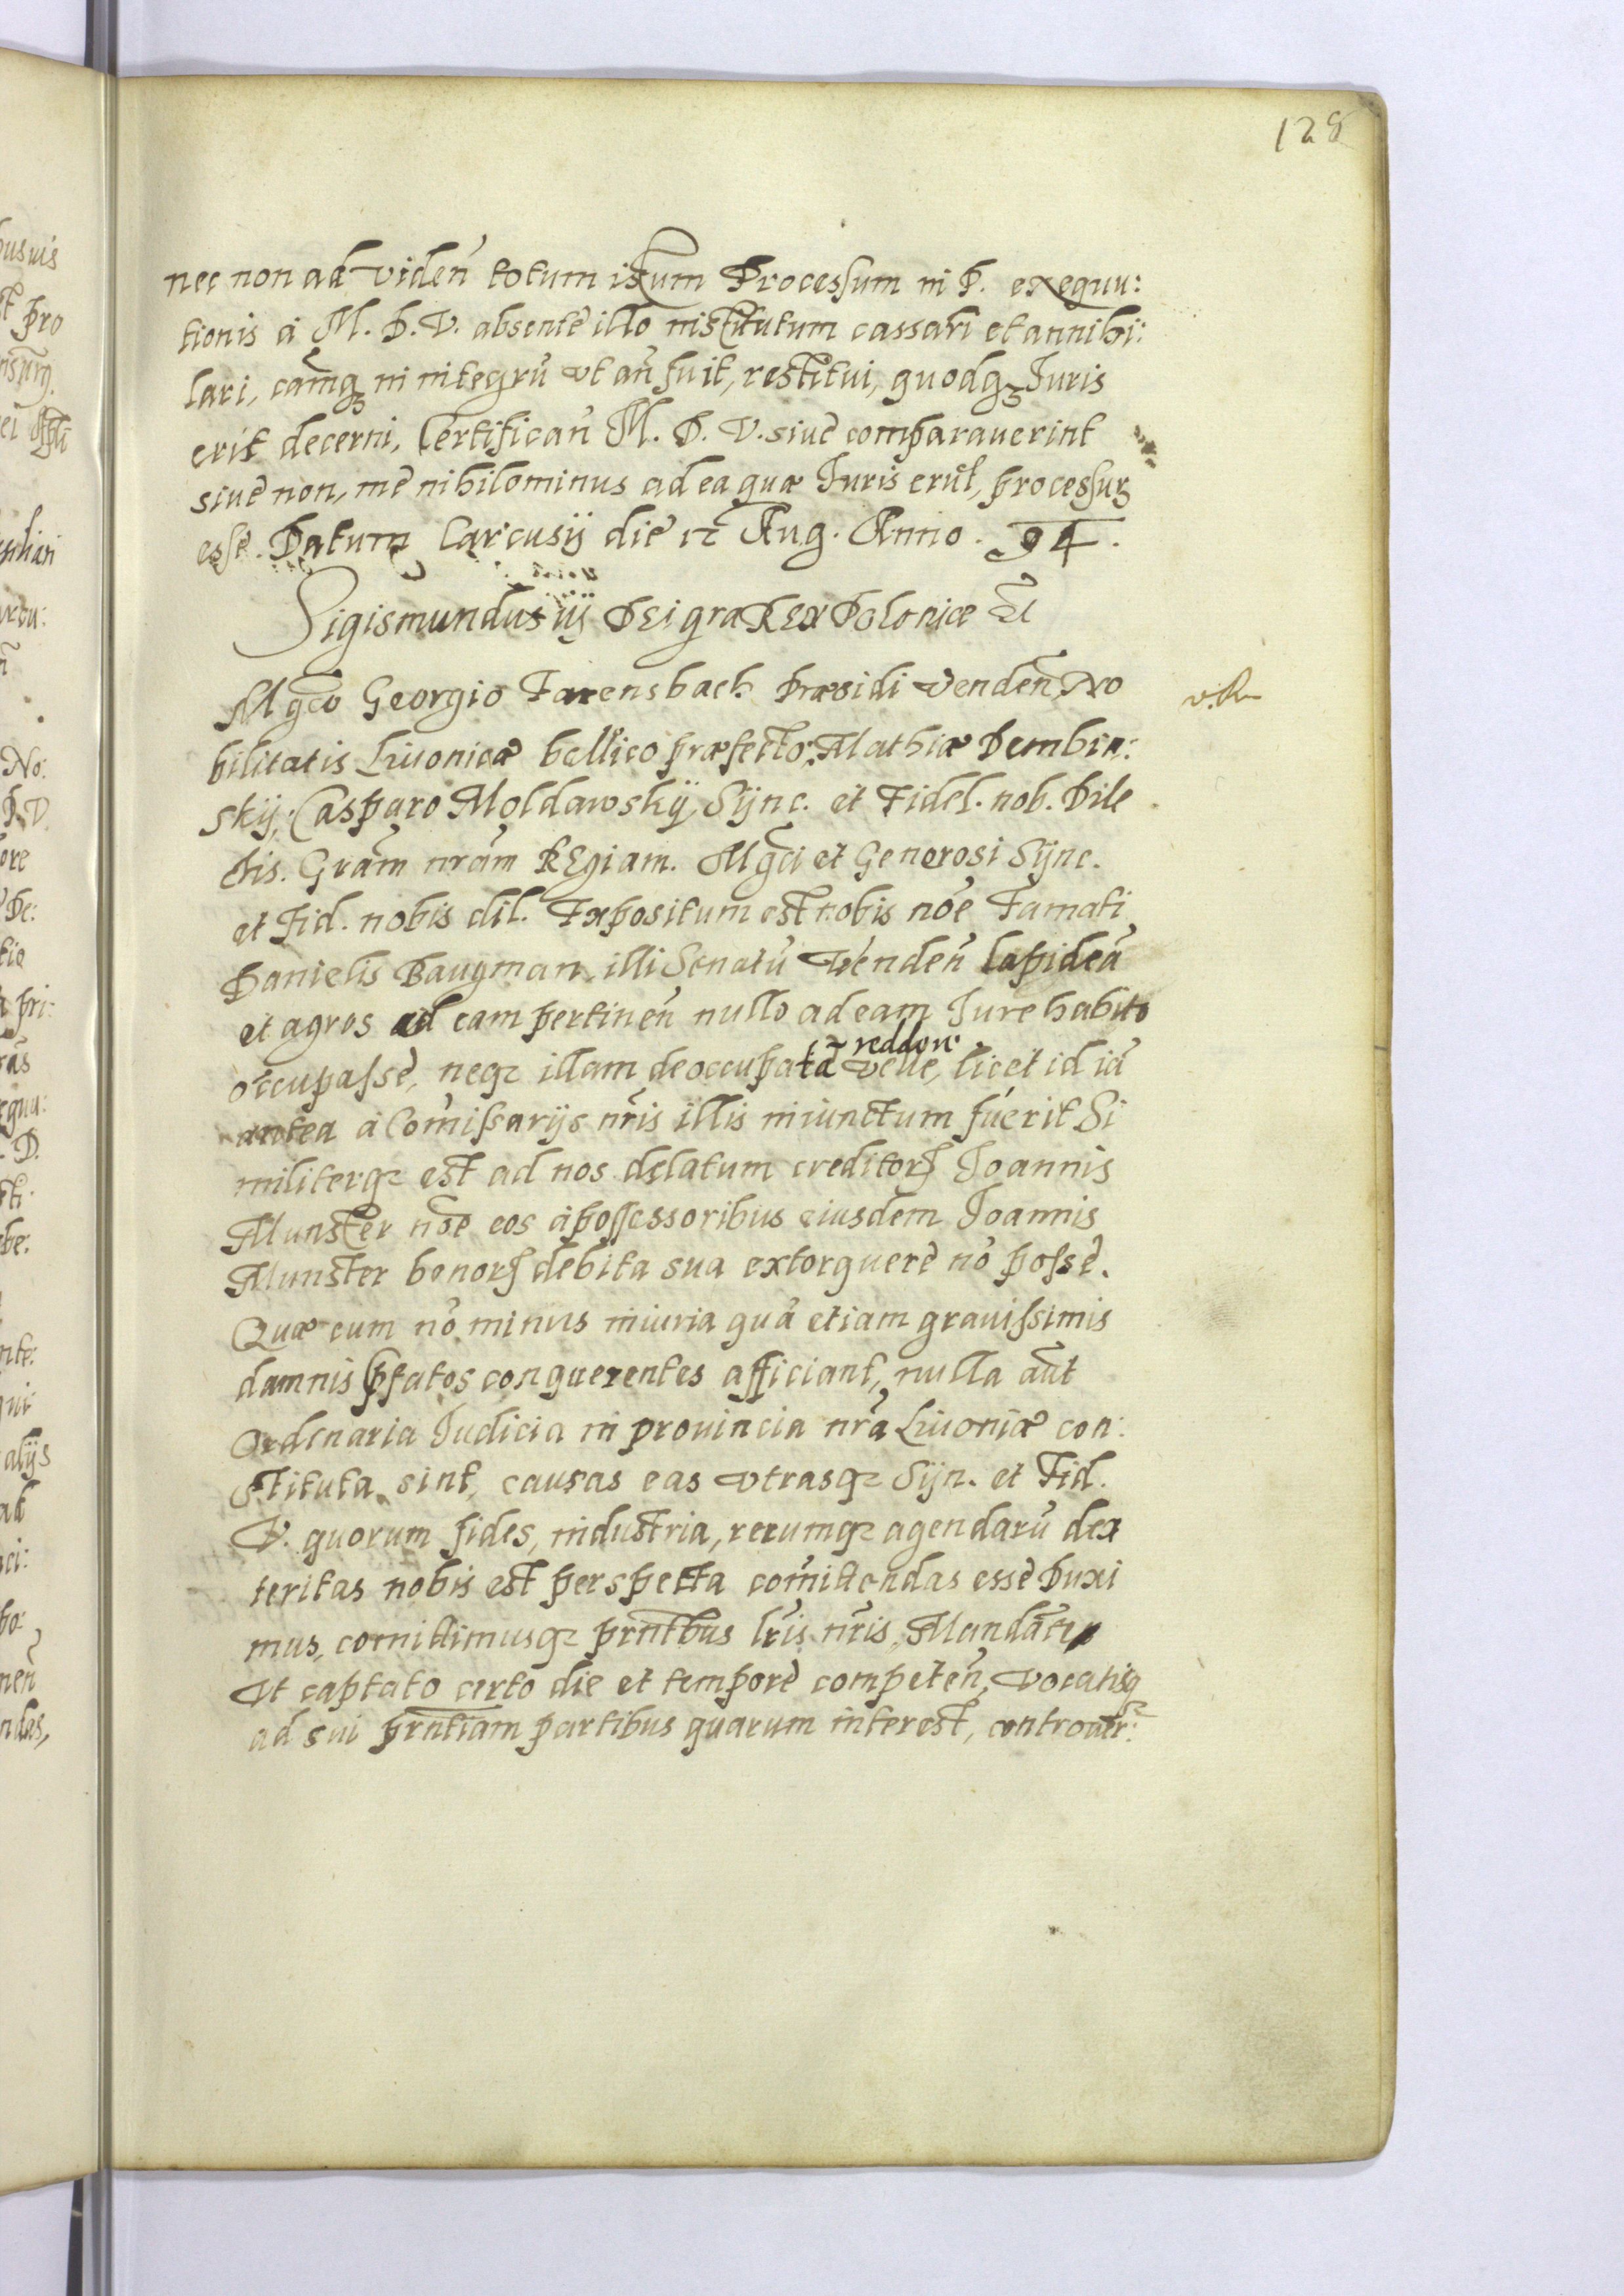 128
nec non ad viden̄ totum istum Processum in P. exequu:
tionis a M. D. V. absente illo institutum cassari et annihi:
lari, camq; in integrū vt an̄ fuit, restitui, quodq; Juris
erit decerni, Certifican̄ M. D. V. siue comparauerint
siue non, me nihilominus ad ea quæ Juris erūt, processurū
esse. Datum Carcusij die 12 Aug. Anno. 94.
Sigismundus iij DEi gra REx Poloniæ &
Mgco Georgio Farensbach Præsidi Venden̄, No
v. R
bilitatis Liuonicæ bellico præfecto; Mathiæ Dembin:
skij, Casparo Moldawskij, Sÿnc. et Fidel. nob. Dile
ctis. Grām nrām REgiam. Mgci et Generosi Sÿnc.
et Fid. nobis dil. Expositum est nobis nōe Famati
Danielis Baugman, illi Senatū Wenden̄ lapideā
et agros ad eam pertinen̄ nullo ad eam Jure habito
occupasse, neq; illam deoccupatā reddere velle, licet id iā
antea a Comissarijs nris illis iniunctum fuerit Si
militerq; est ad nos delatum creditorū Joannis
Munster nōe eos a possessoribus eiusdem Joannis
Munster bonorū debita sua extorquere nō posse.
Quæ cum nō minus iniuria quā etiam grauissimis
damnis pfatos conquerentes afficiant, nulla aūt
Ordenaria Judicia in prouincia nrā Liuoniæ con:
stituta sint, causas eas vtrasq; Sÿn. et Fid.
V. quorum fides, industria, rerumq; agendarū dex
teritas nobis est perspecta comittendas esse Duxi
mus, comittimusq; prntbus lris nris, Mandates
Vt captato certo die et tempore competen̄, vocatisq;
ad sui prntiam partibus quarum interest, controuer: